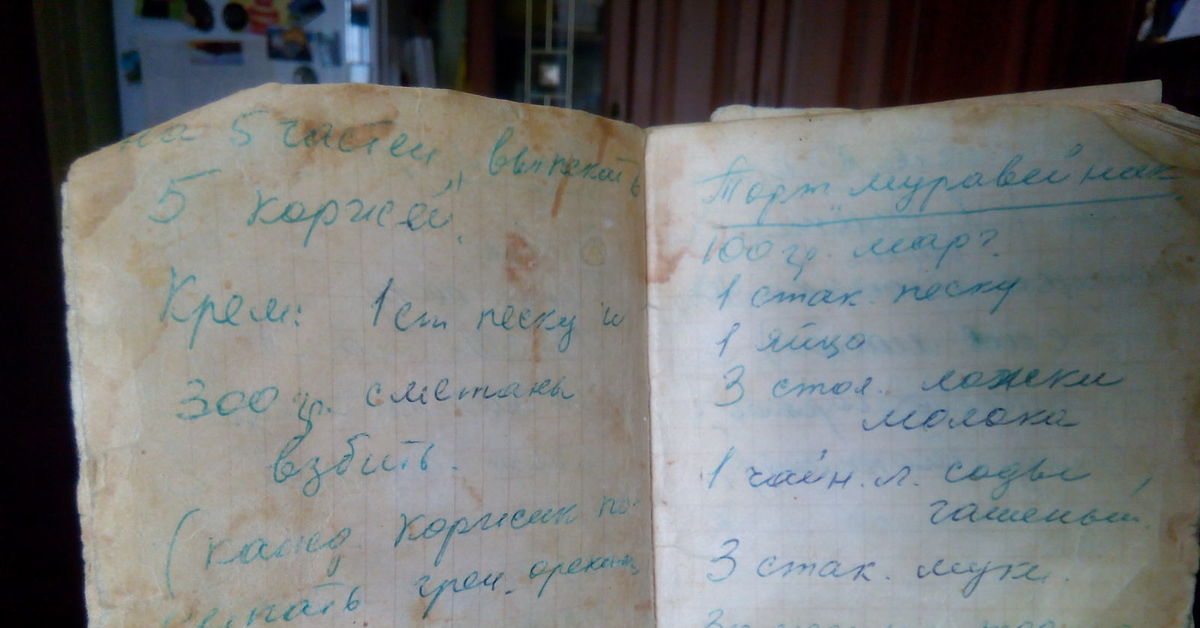 на 5 частей, выпекать
5 коржей.
Крем: 1 ст песку и
300 гр. сметаны
взбить.
(кажд коржик по-
сыпать грец. орехами
Торт "муравейник
100 гр. марг.
1 стак. песку
1 яйцо
3 стол. ложки
молока
1 чайн. л. соды,
гашеным.
3 стак. муки.